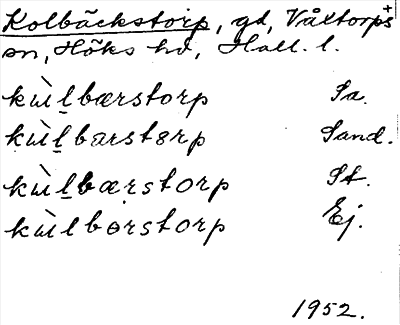 Kolbäckstorp, gd, Våxtorps+
sn, Höks hd, Hall. l.
kùḻbærstorp Sa.
kùḻbarstørp Sand.
kùḻbærstorp St.
kùlbɵrstorp Ej.
1952.